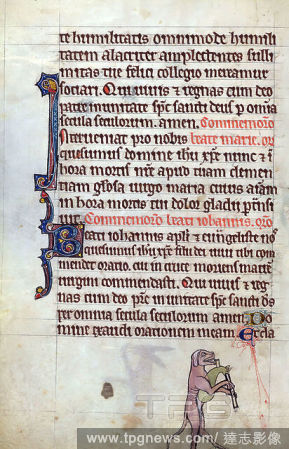 te humilitatis omnimode humili
tatem alacriter amplectentes subli
mitatis tue felici collegio mereamur
sociari. Qui vivis et regnas cum deo
patre in unitate spc sancti deus p omnia
secula seculorum. amen. Commemoro
Interveniat pro nobis beate marie. or
quesumus domine ihu xpe nunc et i
hora mortis nre apud tuam clemen
tiam glosa virgo maria cuius aiam
in hora mortis tui dolor gladii ptransi
vit. Commemoro beati iohannis. oro
Beati iohannis apli et evngeliste no
quesumus ihu xpe fili dei vivi tibi com
mendet oratio. cui in cruce moriens matre
virginem commendasti. Qui vivis et reg
nas cum deo pre in unitate spc sancti ds
per omnia secula seculorum amen. Do
mine exaudi orationem meam. Et cla
TPG
www.tpgnews.com / 達志影像